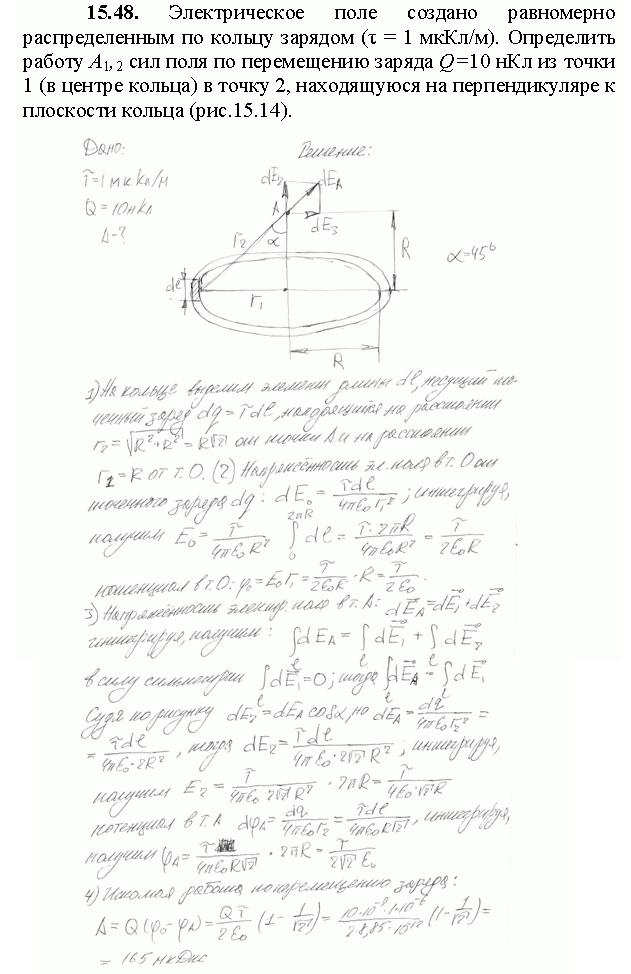 15.48. Электрическое поле создано равномерно
распределенным по кольцу зарядом (τ = 1 мкКл/м). Определить
работу A₁,₂ сил поля по перемещению заряда Q=10 нКл из точки
1 (в центре кольца) в точку 2, находящуюся на перпендикуляре к
плоскости кольца (рис.15.14).
Дано:
Решение:
τ=1мкКл/м
Q=10нКл
A-?
dE₂
dE_A
A
dE₃
r₂
α
R
α=45°
dl
r₁
R
1) На кольце выделим элемент длины dl, несущий то-
чечный заряд dq=τdl, находящийся на расстоянии
r₂=√(R²+R²)=R√2 от точки A и на расстоянии
r₁=R от т.О. (2) Напряжённость эл. поля в т. О от
точечного заряда dq: dE₀ = τdl/(4πε₀r₁²); интегрируя,
получим E₀= τ/(4πε₀R²) ∫₀^(2πR) dl = τ·2πR/(4πε₀R²) = τ/(2ε₀R)
потенциал в т.О: φ₀=E₀r₁= τ/(2ε₀R)·R= τ/(2ε₀).
3) Напряжённость электр. поля в т.A: dE⃗_A=dE⃗₁+dE⃗₂
интегрируя, получим: ∫dE_A = ∫dE⃗₁ + ∫dE⃗₂
в силу симметрии ∫dE⃗₁=0; тогда ∫dE⃗_A = ∫dE⃗₁
Судя по рисунку dE₂=dE_A cosα, но dE_A= dq/(4πε₀r₂²) =
= τdl/(4πε₀·2R²), тогда dE₂= τdl/(4πε₀·2√2R²); интегрируя,
получим E₂= τ/(4πε₀·2√2R²)·2πR= τ/(4ε₀·√2R)
потенциал в т.A dφ_A= dq/(4πε₀r₂) = τdl/(4πε₀R√2), интегрируя,
получим φ_A= τ/(4πε₀R√2)·2πR= τ/(2√2ε₀)
4) Искомая работа по перемещению заряда:
A=Q(φ₀-φ_A)= Qτ/(2ε₀)(1-1/√2)= 10·10⁻⁹·1·10⁻⁶/(2·8,85·10⁻¹²)(1-1/√2)=
= 165 мкДж